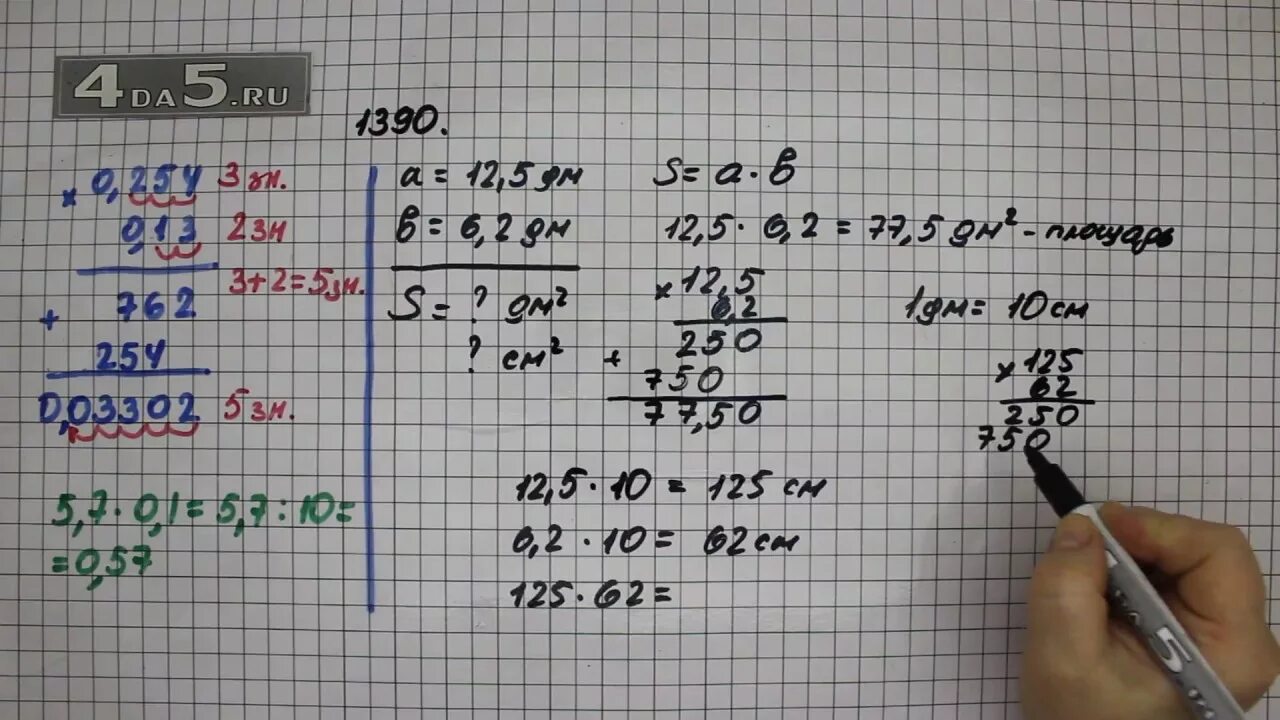 4DA5.RU
1390.
× 0,254 3 зн.
0,13 2 зн
3+2=5 зн.
+ 762
254
0,03302 5 зн.
5,7 · 0,1 = 5,7 : 10 =
= 0,57
a = 12,5 дм
в = 6,2 дм
S = ? дм²
? см²
S = a · в
12,5 · 6,2 = 77,5 дм² - площадь
× 12,5
6,2
250
+ 750
77,50
1 дм = 10 см
× 125
62
250
750
12,5 · 10 = 125 см
6,2 · 10 = 62 см
125 · 62 =